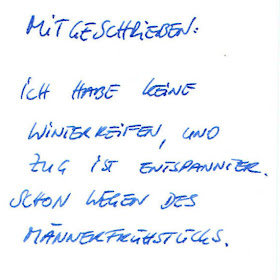 MITGESCHRIEBEN:
ICH HABE KEINE
WINTERREIFEN, UND
ZUG IST ENTSPANNTER.
SCHON WEGEN DES
MÄNNERFRÜHSTÜCKS.